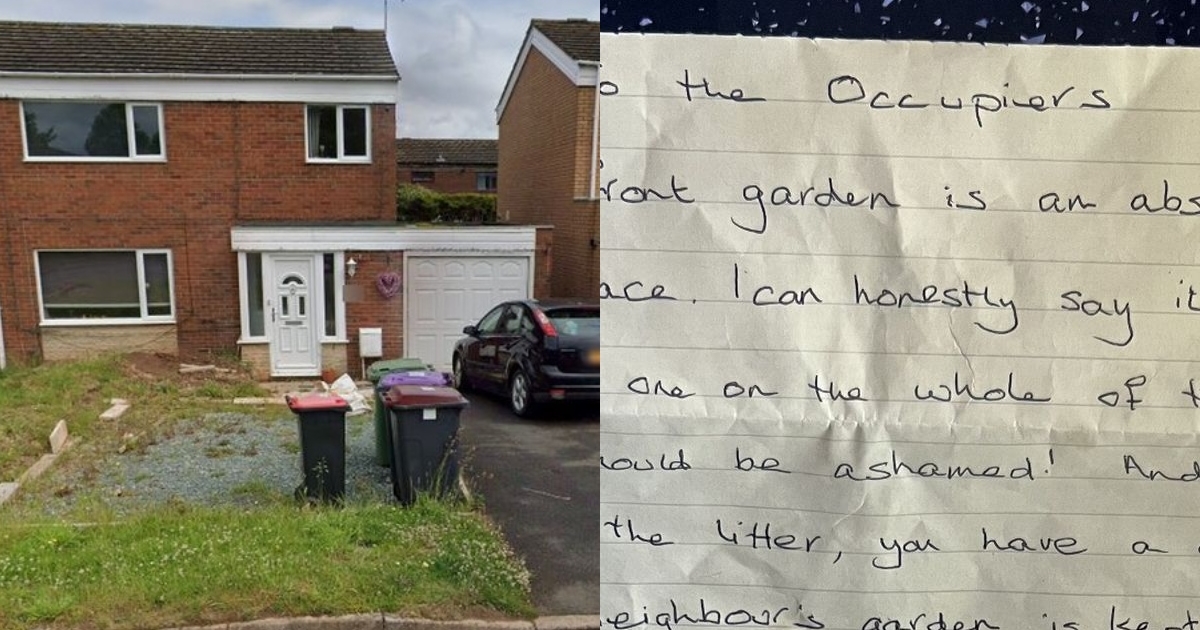 o the Occupiers
ront garden is an abs
ace. I can honestly say it
one on the whole of t
ould be ashamed! And
the litter, you have a
eighbour's garden is kept